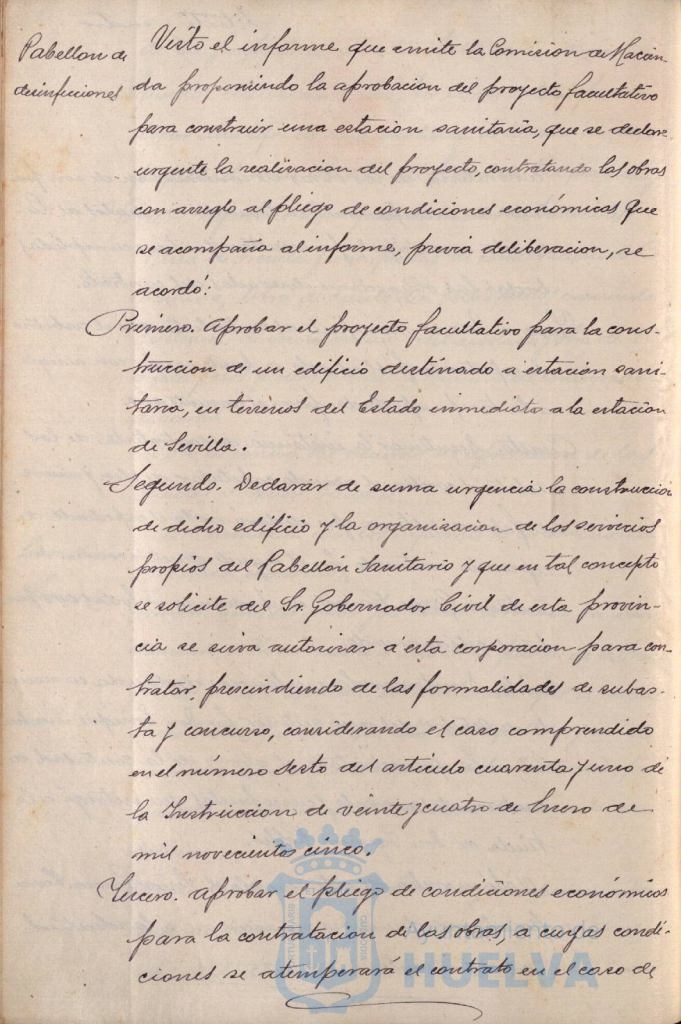 Pabellon de
desinfecciones
Visto el informe que emite la Comision de Hacien-
da proponiendo la aprobacion del proyecto facultativo
para construir una estacion sanitaria, que se declare
urgente la realizacion del proyecto, contratando las obras
con arreglo al pliego de condiciones económicas que
se acompaña al informe, previa deliberacion, se
acordó:
Primero. Aprobar el proyecto facultativo para la cons-
truccion de un edificio destinado a estación sani-
taria, en terrenos del Estado inmediato a la estacion
de Sevilla.
Segundo. Declarar de suma urgencia la construccion
de dicho edificio y la organizacion de los servicios
propios del Pabellón Sanitario y que en tal concepto
se solicite del Sr. Gobernador Civil de esta provin-
cia se sirva autorizar á esta corporacion para con-
tratar, prescindiendo de las formalidades de subas-
ta y concurso, considerando el caso comprendido
en el número sexto del articulo cuarenta y uno de
la Instruccion de veinte y cuatro de Enero de
mil novecientos cinco.
Tercero. Aprobar el pliego de condiciones económicas
para la contratacion de las obras, a cuyas condi-
ciones se atemperará el contrato en el caso de
HUELVA